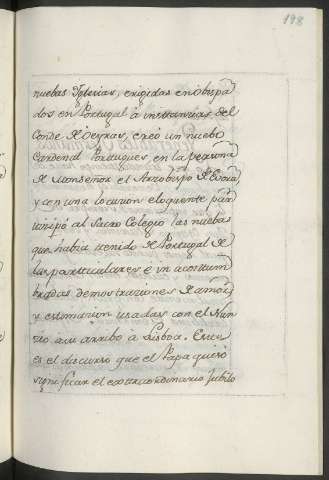 198
nuebas Iglesias, erigidas en obispa
dos en Portugal à instancias del
Conde de Oeyras, creó un nuebo
Cardenal Portugues en la persona
de Monseñor el Arzobispo de Evora
y con una locucion eloquente par
ticipó al Sacro Colegio las nuebas
que habia tenido de Portugal de
las particulares e in acostum
bradas demostraciones de amor,
y estimacion usadas con el Nun
cio a su arribo a Lisboa. 
es el discurso que el Papa quiso
significar el extraordinario Jubilo